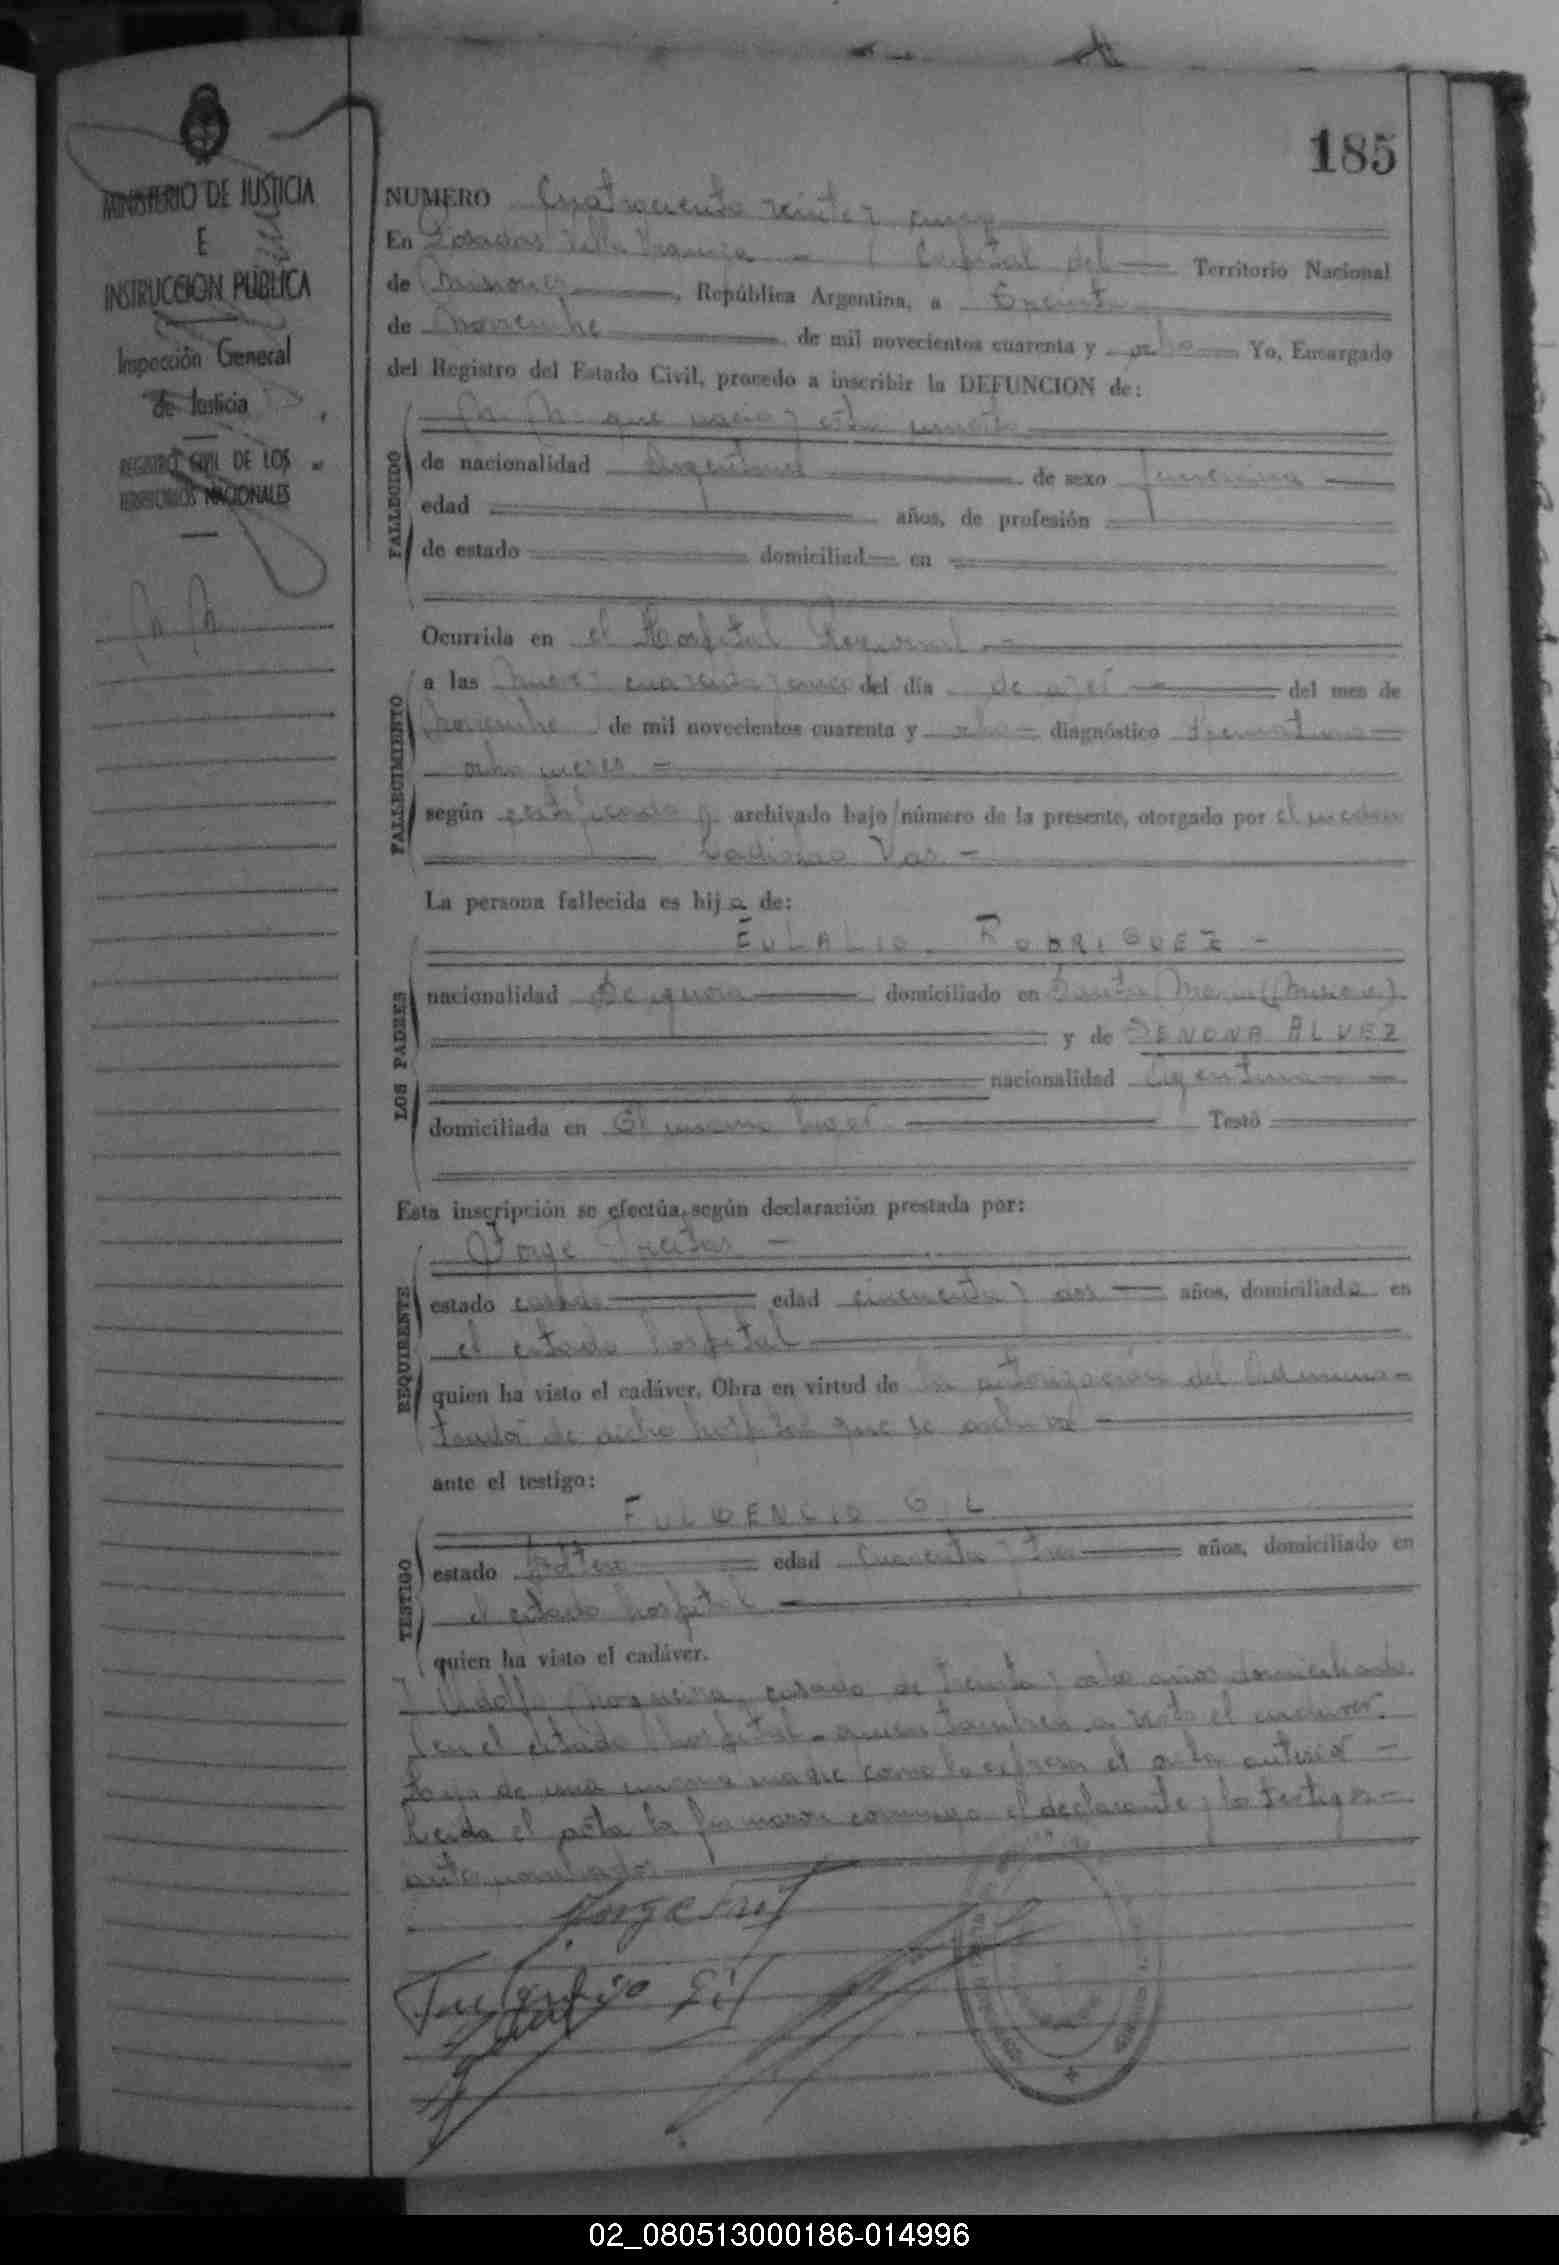 185
MINISTERIO DE JUSTICIA
E
INSTRUCCION PUBLICA
Inspección General
de Justicia
REGISTRO CIVIL DE LOS
TERRITORIOS NACIONALES
N. N.
NUMERO Cuatrocientos veinte y cinco
En Posadas Villa Urquiza Capital del Territorio Nacional
de Misiones, República Argentina, a treinta
de Noviembre de mil novecientos cuarenta y ocho Yo, Encargado
del Registro del Estado Civil, procedo a inscribir la DEFUNCION de:
N. N. que nació y está muerta
FALLECIDO
de nacionalidad Argentina de sexo femenino
edad años, de profesión
de estado domiciliad en
Ocurrida en el Hospital Regional
FALLECIMIENTO
a las nueve y cuarenta y cinco del día de ayer del mes de
Noviembre de mil novecientos cuarenta y ocho diagnóstico Prematuro
ocho meses
según certificado archivado bajo número de la presente, otorgado por el médico
Ladislao
La persona fallecida es hija de:
EULALIO RODRIGUEZ
LOS PADRES
nacionalidad domiciliado en Santa María (Misiones)
y de SENONA ALVEZ
nacionalidad Argentina
domiciliada en El mismo lugar Testó
Esta inscripción se efectúa, según declaración prestada por:
Jorge Freitas
REQUIRENTE
estado casado edad cincuenta y dos años, domiciliado en
el citado hospital
quien ha visto el cadáver. Obra en virtud de la autorización del Adminis-
trador de dicho hospital que se archiva
ante el testigo:
FULGENCIO GIL
TESTIGO
estado Soltero edad Cuarenta y tres años, domiciliado en
el citado hospital
quien ha visto el cadáver.
Y Adolfo Nogueira, casado de treinta y ocho años domiciliado
en el citado hospital quien tambien a visto el cadaver.
hija de una misma madre como lo expresa el acta anterior
Leida el acta la firmaron conmigo el declarante y los testigos
antes nombrados
Fulgencio Gil
02_080513000186-014996